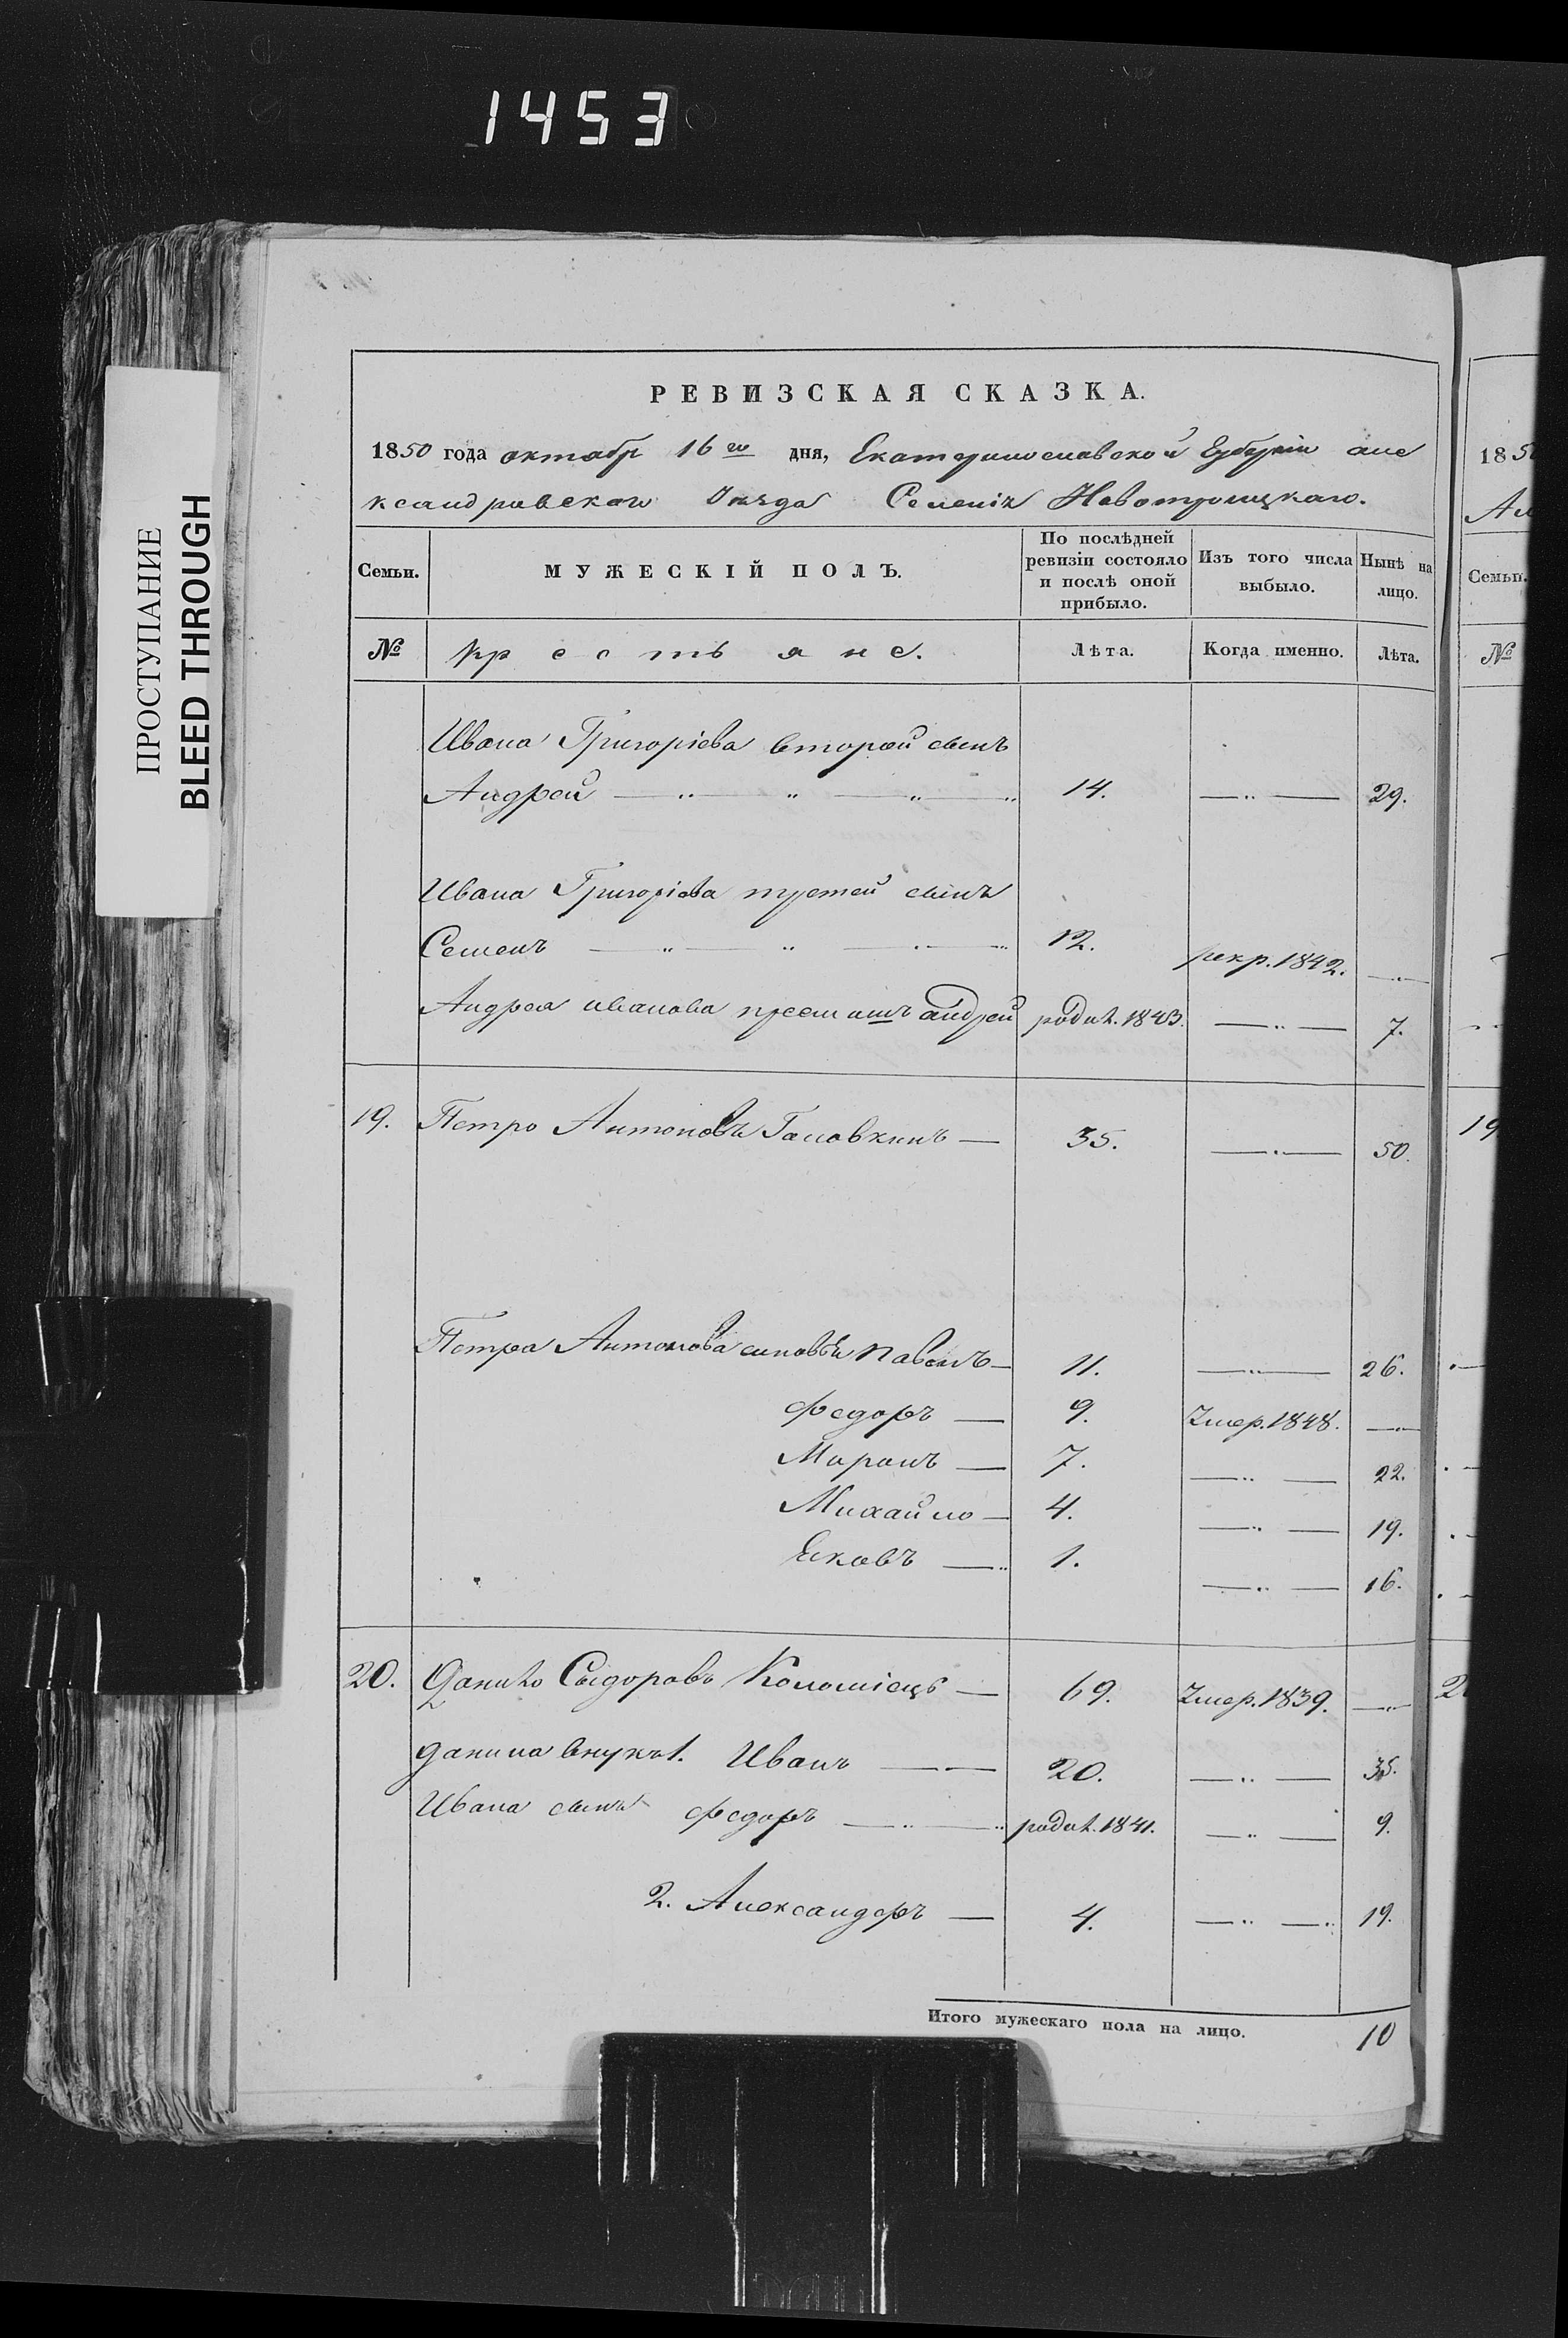 1453
ПРОСТУПАНИЕ
BLEED THROUGH
РЕВИЗСКАЯ СКАЗКА.
1850 года октабр 16го дня, Екатеринославской Губерніи але
ксандровскаго Уезда Селенія Новотроицкаго.
Семьи.
МУЖЕСКІЙ ПОЛЪ.
По послѣдней ревизіи состояло и послѣ оной прибыло.
Изъ того числа выбыло.
Нынѣ на лицо.
№ крестьяне. Лѣта. Когда именно. Лѣта.
Ивана Григоріева второй сынъ
Андрей 14. 29.
Ивана Григоріева третей сынъ
Семенъ 12. рекр. 1842.
Андрея иванова андрей родил. 1843. 7.
19. Петро Антоновъ Головкинъ 35. 50.
Петра Антонова синовья Павелъ 11. 26.
Федоръ 9. Умер. 1848.
Миронъ 7. 22.
Михайло 4. 19.
Яковъ 1. 16.
20. Данило Сыдоровъ Коломіецъ 69. Умер. 1839.
Данила внуки 1. Иванъ 20. 35.
Ивана сынъ Федоръ родил. 1841. 9.
2. Александеръ 4. 19.
Итого мужескаго пола на лицо. 10
185
Семьи.
№
19